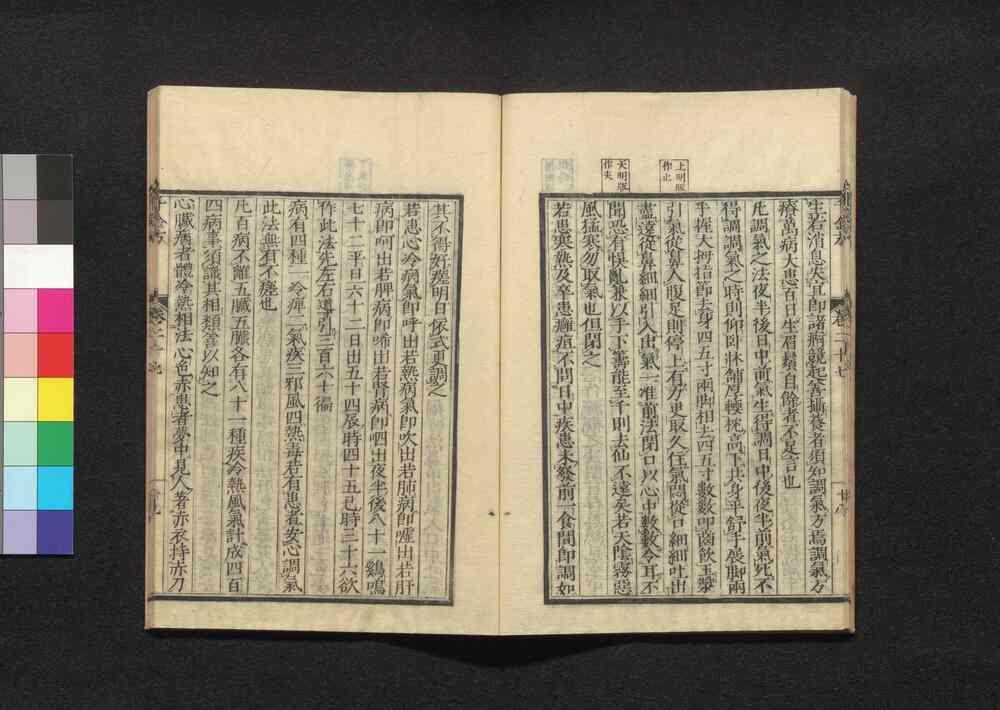 上明版
作止
天明版
作夫
生若消息失宜即諸病競起善攝養者須知調氣方焉調氣方
療萬病大患百日生眉鬚自餘者不足言也
凡調氣之法夜半後日中前氣生得調日中後夜半前氣死不
得調調氣之時則仰臥牀鋪厚軟枕高下共身平舒手展脚兩
手握大拇指節去身四五寸兩脚相去四五寸數數叩齒飲玉漿
引氣從鼻入腹足則停上有力更取久住氣悶從口細細吐出
盡還從鼻細細引入出氣一准前法閉口以心中數數令耳不
聞恐有悞亂兼以手下籌能至千則去仙不遠矣若天陰霧惡
風猛寒勿取氣也但閉之
若患寒熱及卒患癰疽不問日中疾患未發前一食間即調如
其不得好瘥明日依式更調之
若患心冷病氣即呼出若熱病氣即吹出若肺病即噓出若肝
病即呵出若脾病即唏出若腎病即呬出夜半後八十一鷄鳴
七十二平旦六十三日出五十四辰時四十五巳時三十六欲
作此法先左右導引三百六十徧
病有四種一冷痺二氣疾三邪風四熱毒若有患者安心調氣
此法無有不瘥也
凡百病不離五臟五臟各有八十一種疾冷熱風氣計成四百
四病事須識其相類善以知之
心臟病者體冷熱相法心色赤患者夢中見人著赤衣持赤刀